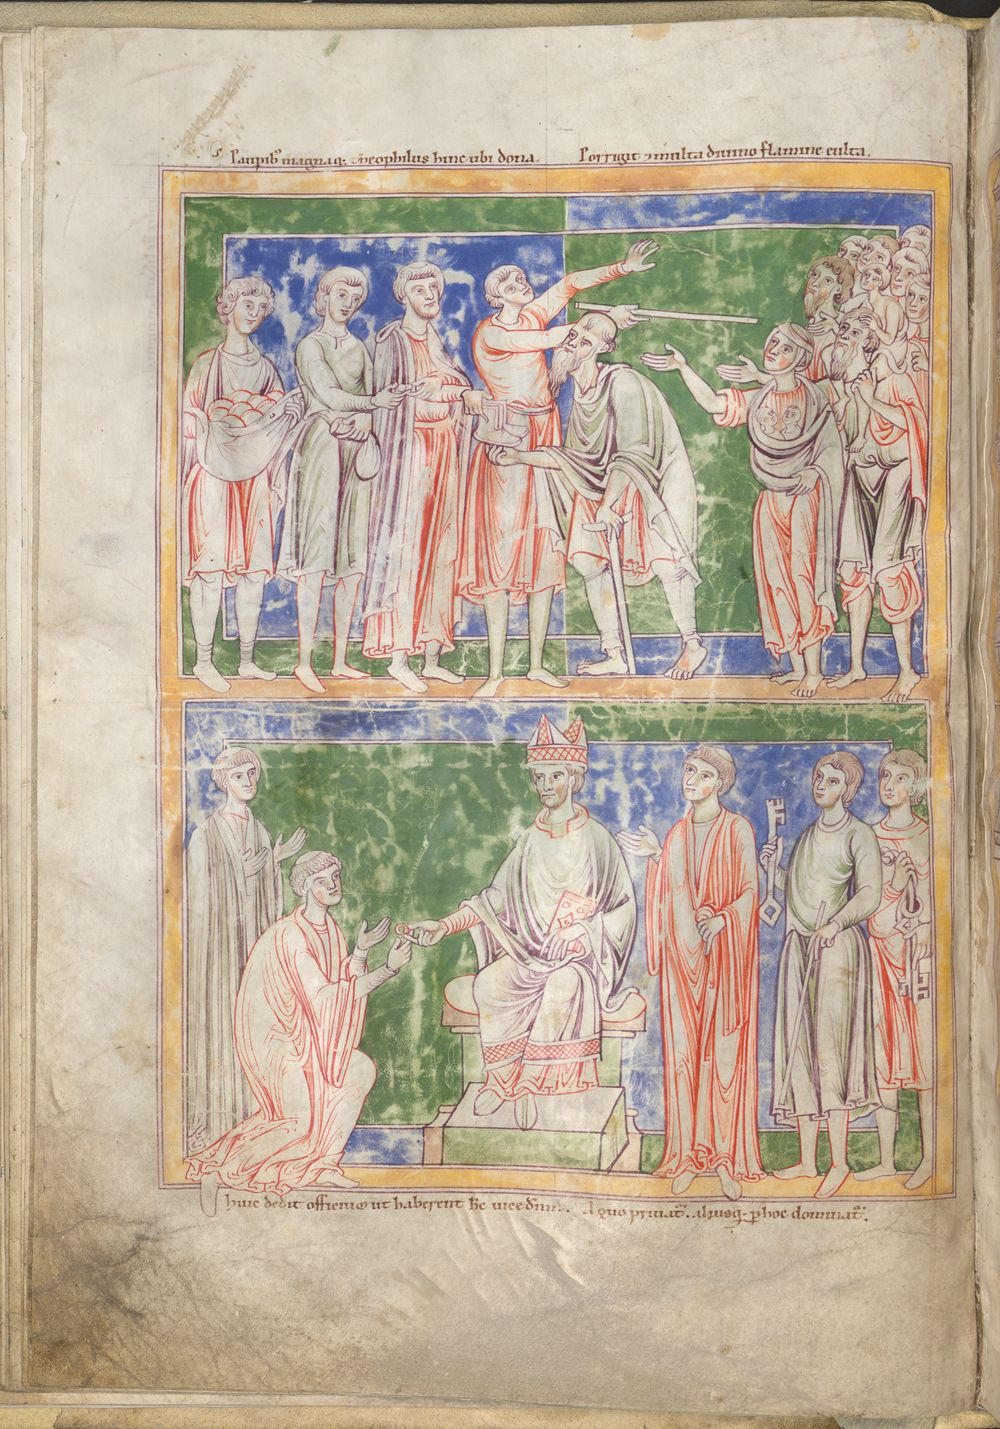 Paupib' magnaq; theophilus hinc ubi dona. Porrigit & multa diuino flamine culta.
huic dedit officium ut haberent hc uicedmn. A quo priuat'. aliusq; p hoc dominat'.